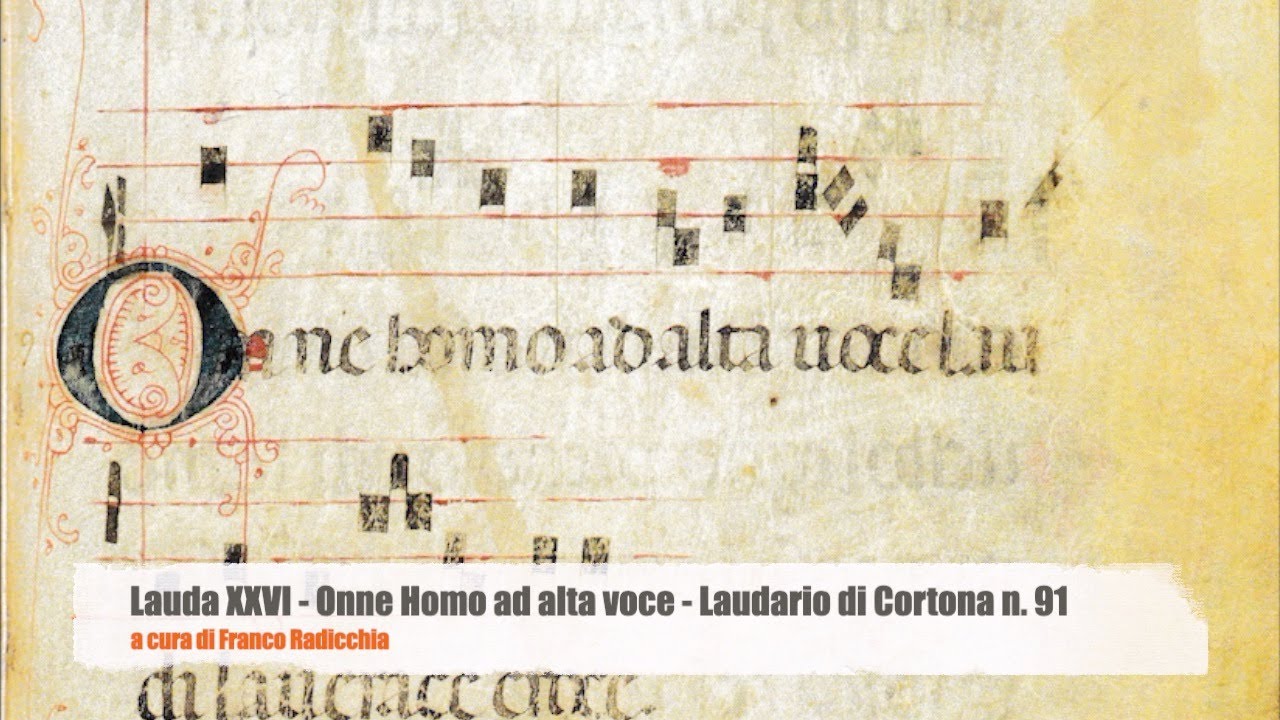 Onne homo ad alta uoce lau
Lauda XXVI - Onne Homo ad alta voce - Laudario di Cortona n. 91
a cura di Franco Radicchia
di la uerace